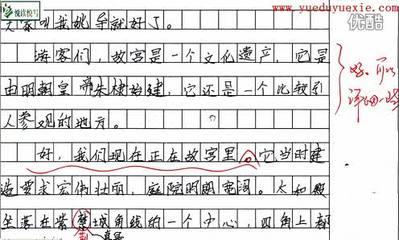 悦读悦写
www.yueduyuexie.com
优酷
叫我姚导就好了。
游客们，故宫是一个文化遗产，它是
由明朝皇帝朱棣始建，它还是一个比较引
人参观的地方。
好，我们现在正在故宫里。它当时建
造要求宏伟壮丽，庭院明朗宽阔。太和殿
坐落在紫禁城角线的一个中心，四角上都
好，可以
详细一些